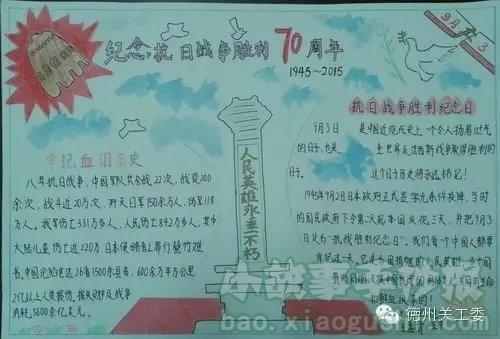 纪念抗日战争胜利70周年
1945～2015
9月3
牢记血泪历史
八年抗日战争，中国军队共会战22次，战役200
余次，战斗近20万次，歼灭日军150余万人，伪军118
万人。我军伤亡331万多人，人民伤亡842万多人，其中
大陆儿童伤亡近220万，日本侵略者之罪行罄竹难
书，中国沦陷区达26省1500余县市，600余万平方公里
2亿以上人受损伤，损失财产及战争
消耗5600余亿美元。
人民英雄永垂不朽
抗日战争胜利纪念日
9月3日
的日子，也是
是中国近现代史上一个令人扬眉吐气
全世界反法西斯战争取得胜利的
日子。
这个日子历史将永远铭记！
1945年9月2日日本政府正式签字无条件投降，当时
的国民政府下令第二天起举国庆祝三天，并把9月3
日定为“抗战胜利纪念日”。我们每个中国人都要
牢记这一天
小故事手抄报
bao.xiaogushi.com
儋州关工委